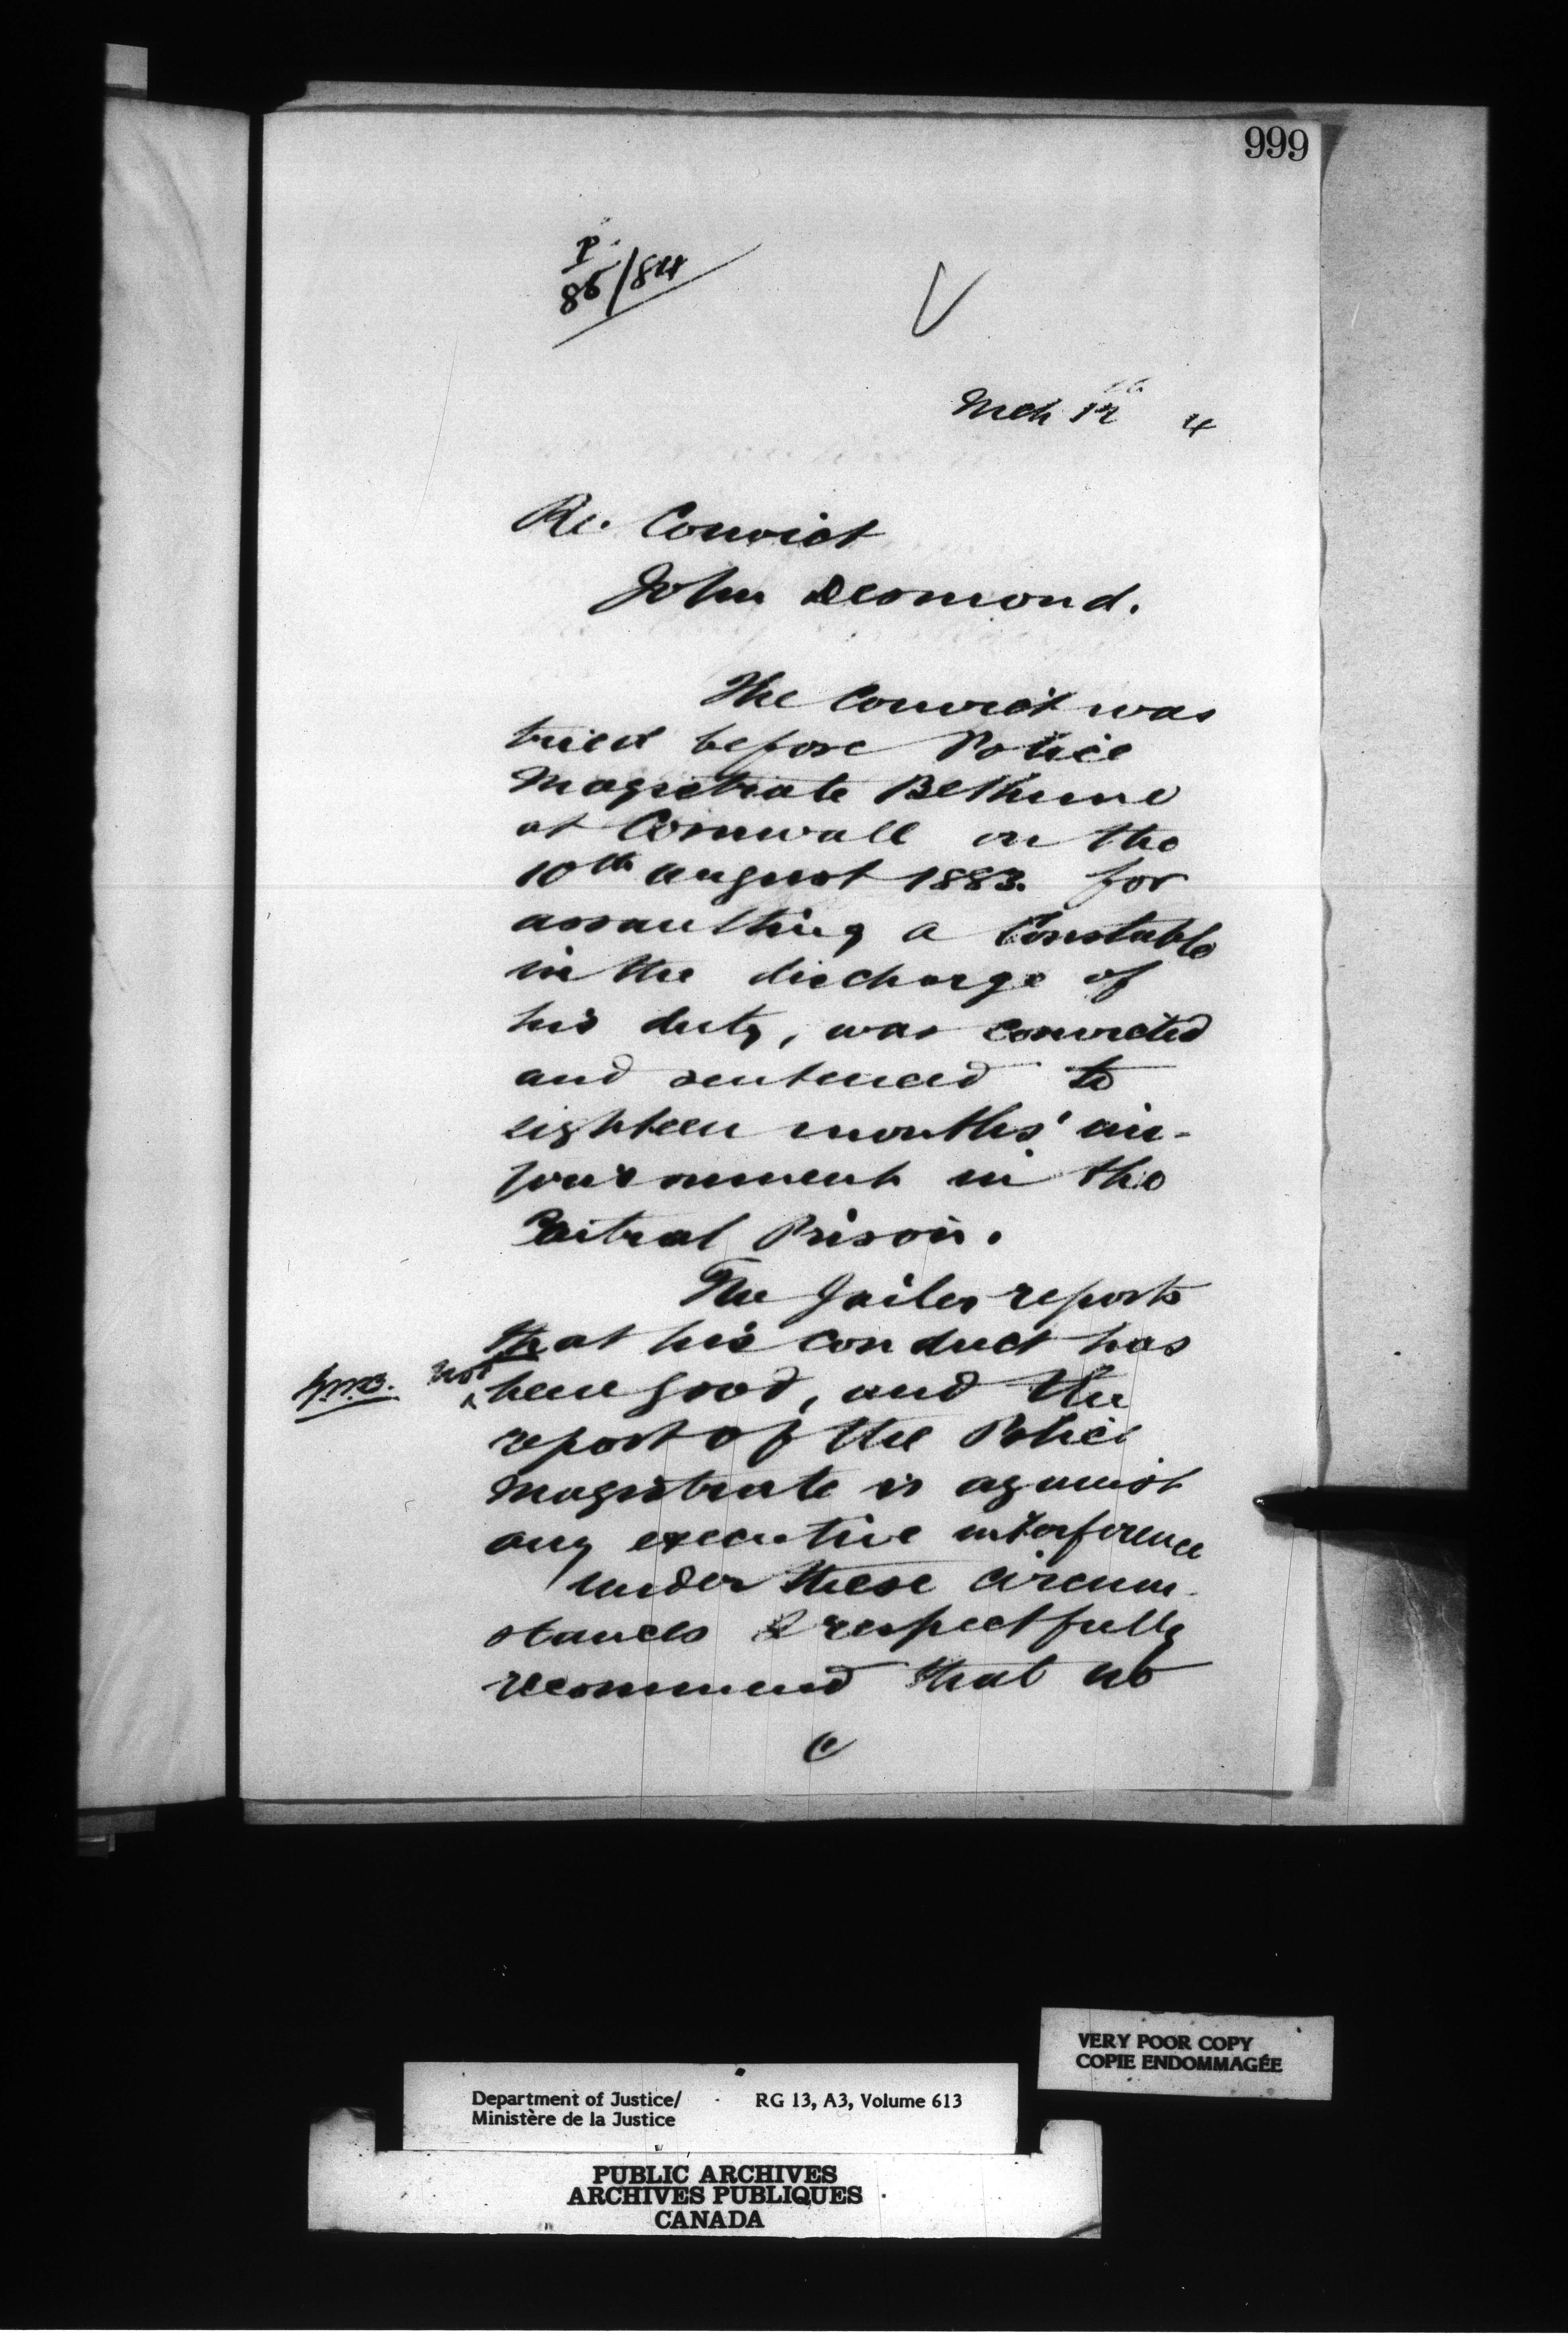 999
P.
86/84
Mch 12th 4
Re. Convict
John Desmond.
The Convict was
tried before Police
Magistrate Bethune
at Cornwall on the
10th August 1883. for
assaulting a Constable
in the discharge of
his duty, was convicted
and sentenced to
eighteen months' im-
prisonment in the
Central Prison.
The Jailer reports
that his conduct has
not
been good, and the
report of the Police
Magistrate is against
any executive interference
under these circum-
stances I respectfully
recommend that no
Department of Justice/ RG 13, A3, Volume 613
Ministère de la Justice
VERY POOR COPY
COPIE ENDOMMAGÉE
PUBLIC ARCHIVES
ARCHIVES PUBLIQUES
CANADA